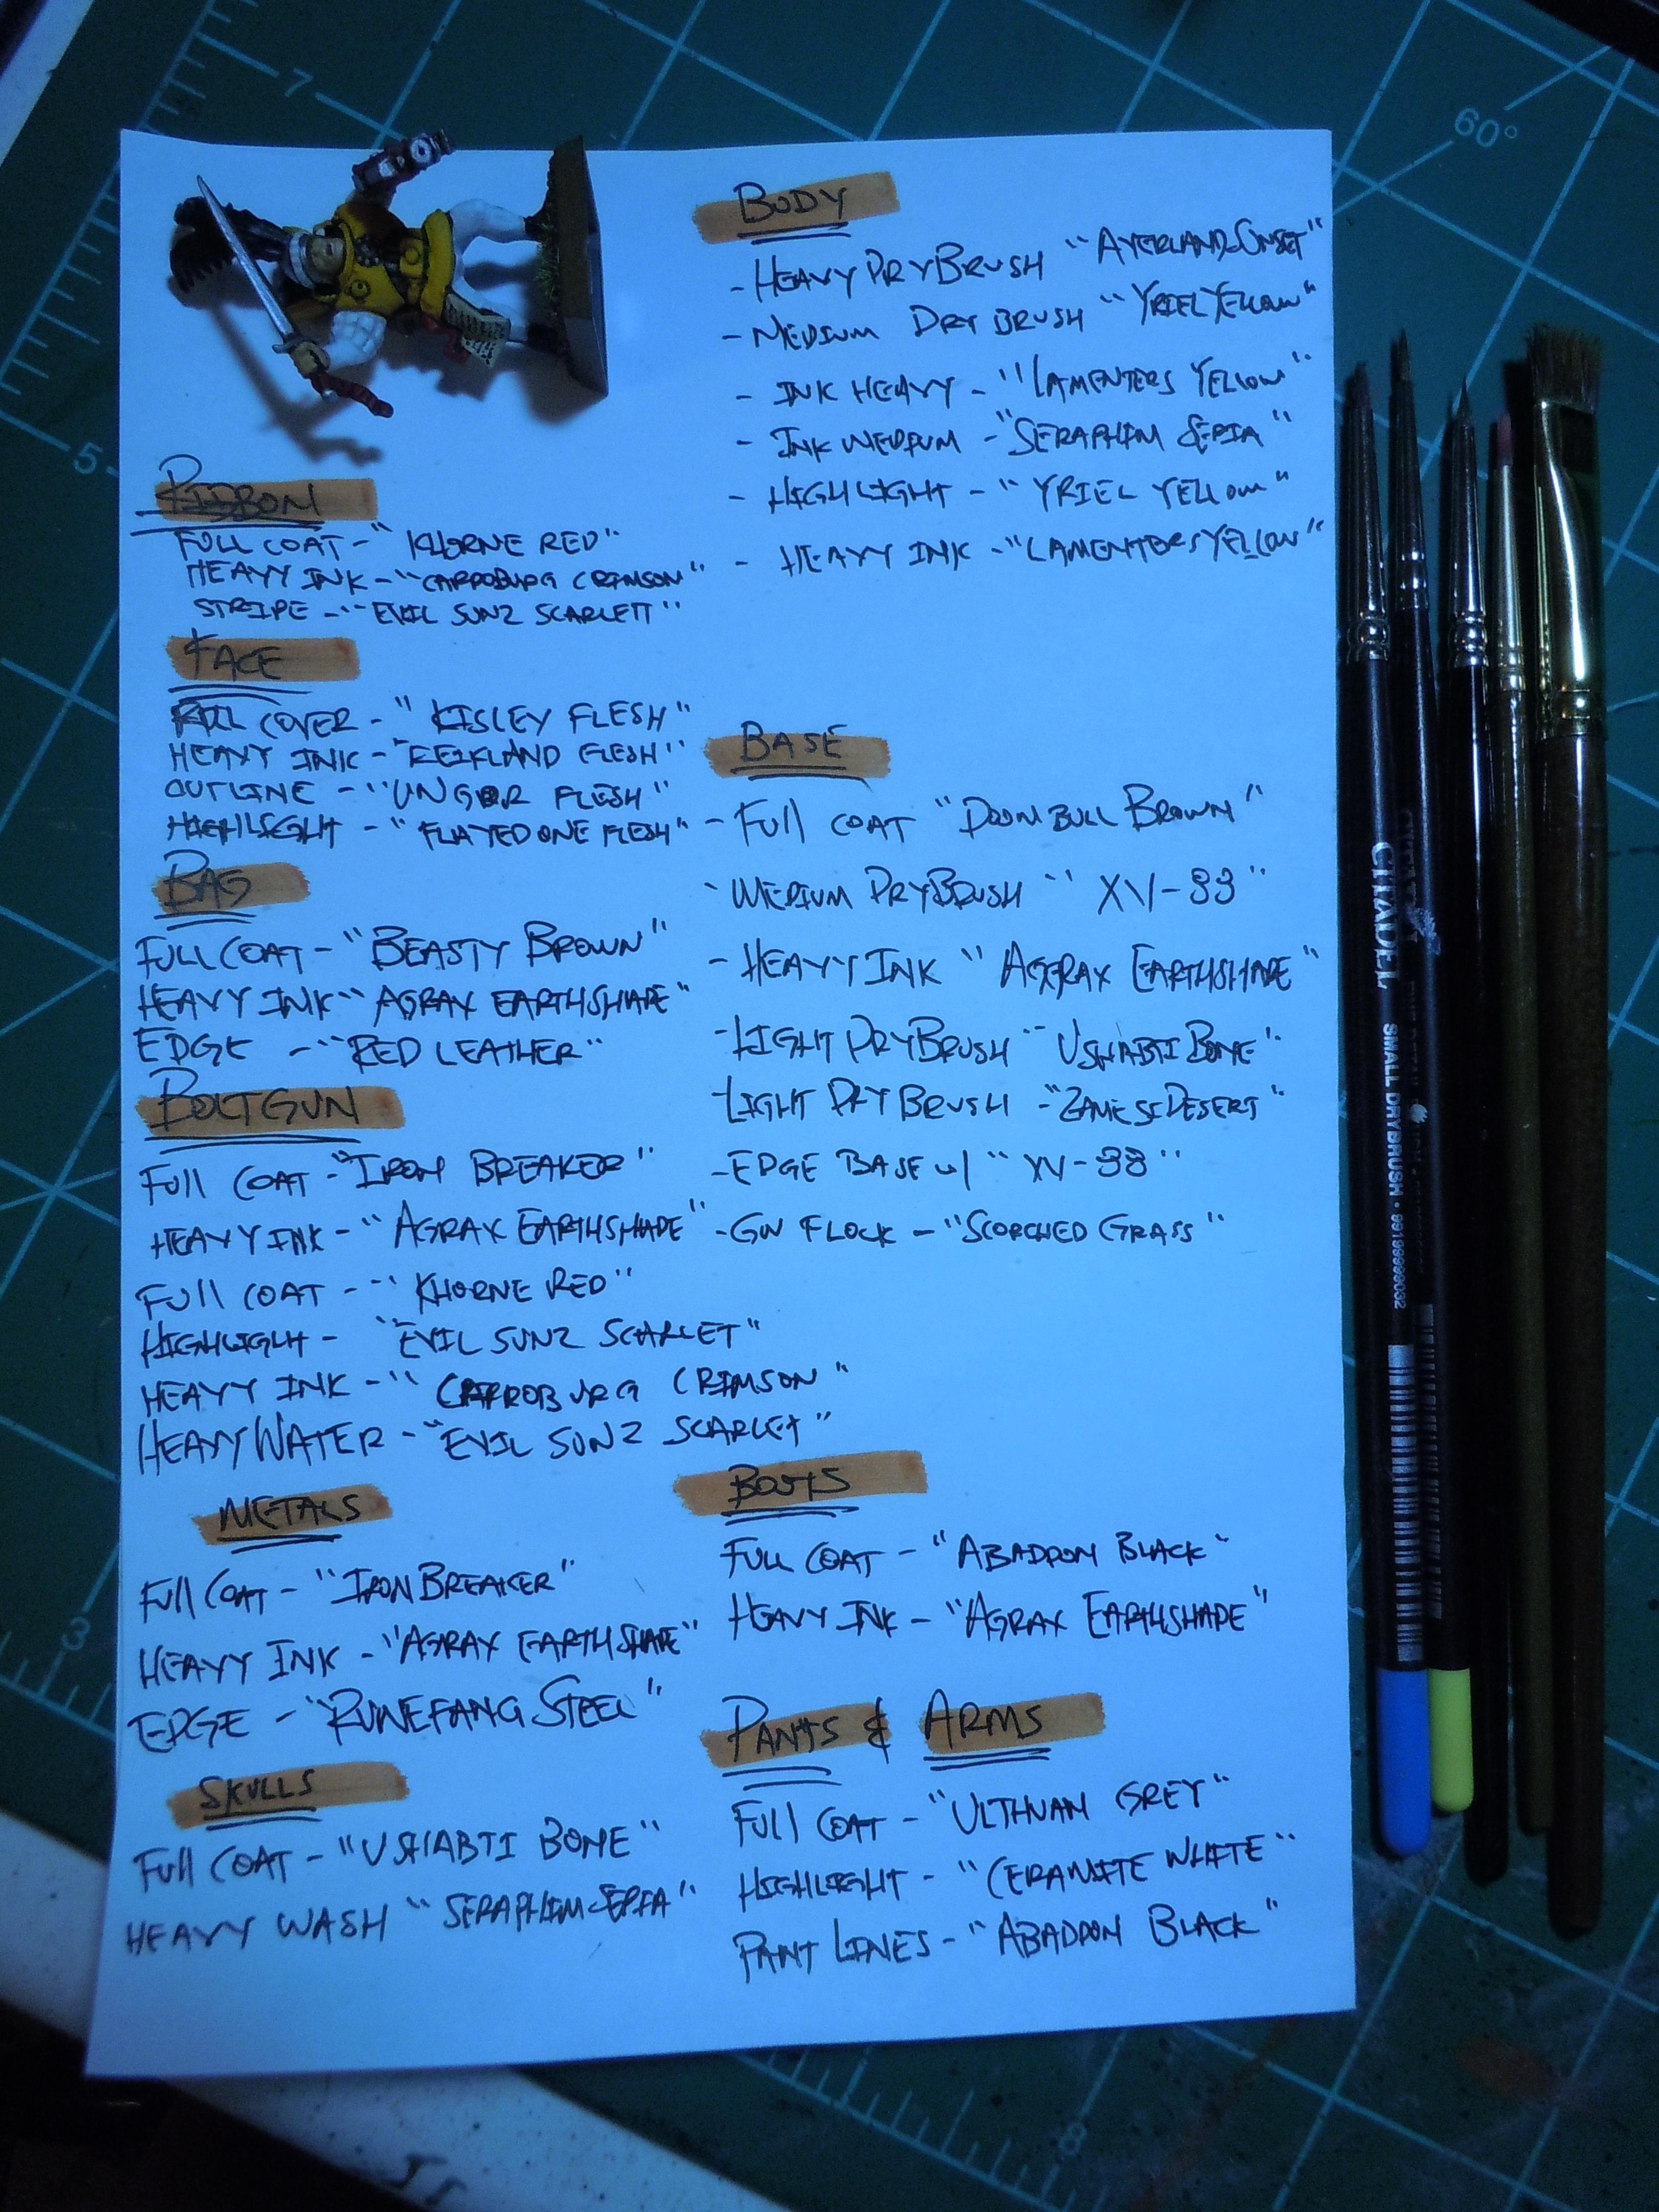 RIBBON
FULL COAT - "KHORNE RED"
HEAVY INK - "CARROBURG CRIMSON"
STRIPE - "EVIL SUNZ SCARLETT"
FACE
FULL COVER - "KISLEY FLESH"
HEAVY INK - "REIKLAND FLESH"
OUTLINE - "UNGOR FLESH"
HIGHLIGHT - "FLAYED ONE FLESH"
BAG
FULL COAT - "BEASTY BROWN"
HEAVY INK "AGRAX EARTHSHADE"
EDGE - "RED LEATHER"
BOLTGUN
FULL COAT - "IRON BREAKER"
HEAVY INK - "AGRAX EARTHSHADE"
FULL COAT - "KHORNE RED"
HIGHLIGHT - "EVIL SUNZ SCARLET"
HEAVY INK - "CARROBURG CRIMSON"
HEAVY WATER - "EVIL SUNZ SCARLET"
METALS
FULL COAT - "IRON BREAKER"
HEAVY INK - "AGRAX EARTHSHADE"
EDGE - "RUNEFANG STEEL"
SKULLS
FULL COAT - "USHABTI BONE"
HEAVY WASH "SERAPHIM SEPIA"
BODY
- HEAVY DRYBRUSH "AVERLAND SUNSET"
- MEDIUM DRY BRUSH "YRIEL YELLOW"
- INK HEAVY - "LAMENTERS YELLOW"
- INK MEDIUM - "SERAPHIM SEPIA"
- HIGHLIGHT - "YRIEL YELLOW"
- HEAVY INK - "LAMENTERS YELLOW"
BASE
- FULL COAT "DOOMBULL BROWN"
- MEDIUM DRYBRUSH "XV-88"
- HEAVY INK "AGRAX EARTHSHADE"
- LIGHT DRYBRUSH "USHABTI BONE"
- LIGHT DRYBRUSH - "ZAMESI DESERT"
- EDGE BASE w/ "XV-88"
- GW FLOCK - "SCORCHED GRASS"
BOOTS
FULL COAT - "ABADDON BLACK"
HEAVY INK - "AGRAX EARTHSHADE"
PANTS & ARMS
FULL COAT - "ULTHUAN GREY"
HIGHLIGHT - "CERAMITE WHITE"
PANT LINES - "ABADDON BLACK"
CITADEL SMALL DRYBRUSH
7
5
3
60°
8